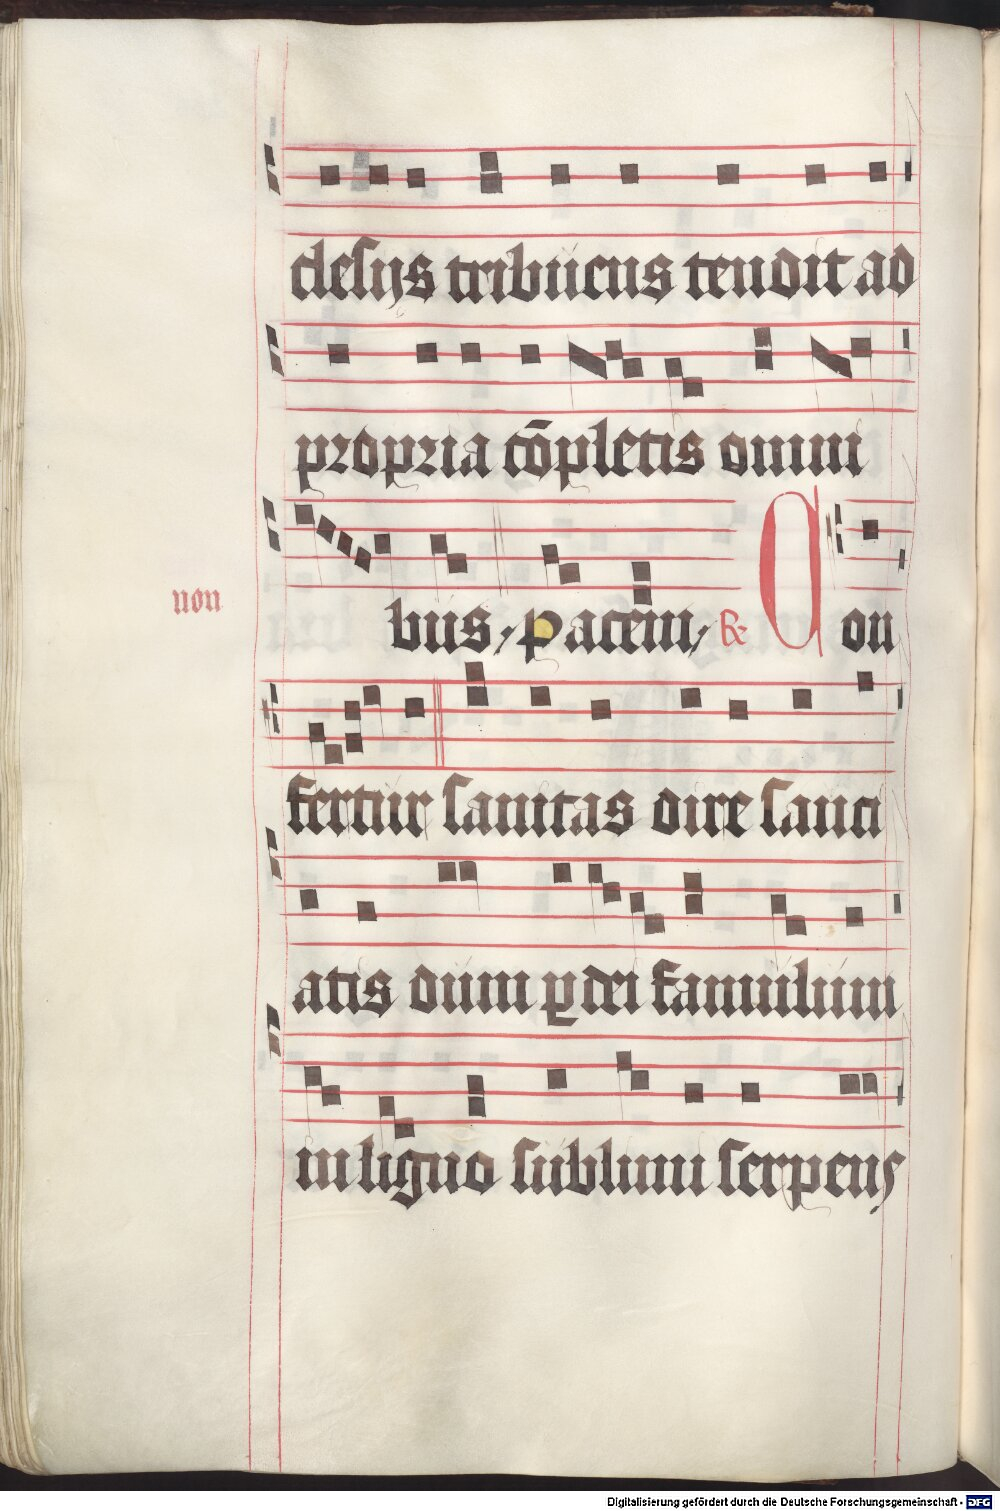 clesijs tribucus tendit ad
propria cōpletis omni
bus, pacem, R Con
non
fertur sanitas dire sauci
atis dum p dei famulum
in ligno sublimi serpens
Digitalisierung gefördert durch die Deutsche Forschungsgemeinschaft - DFG